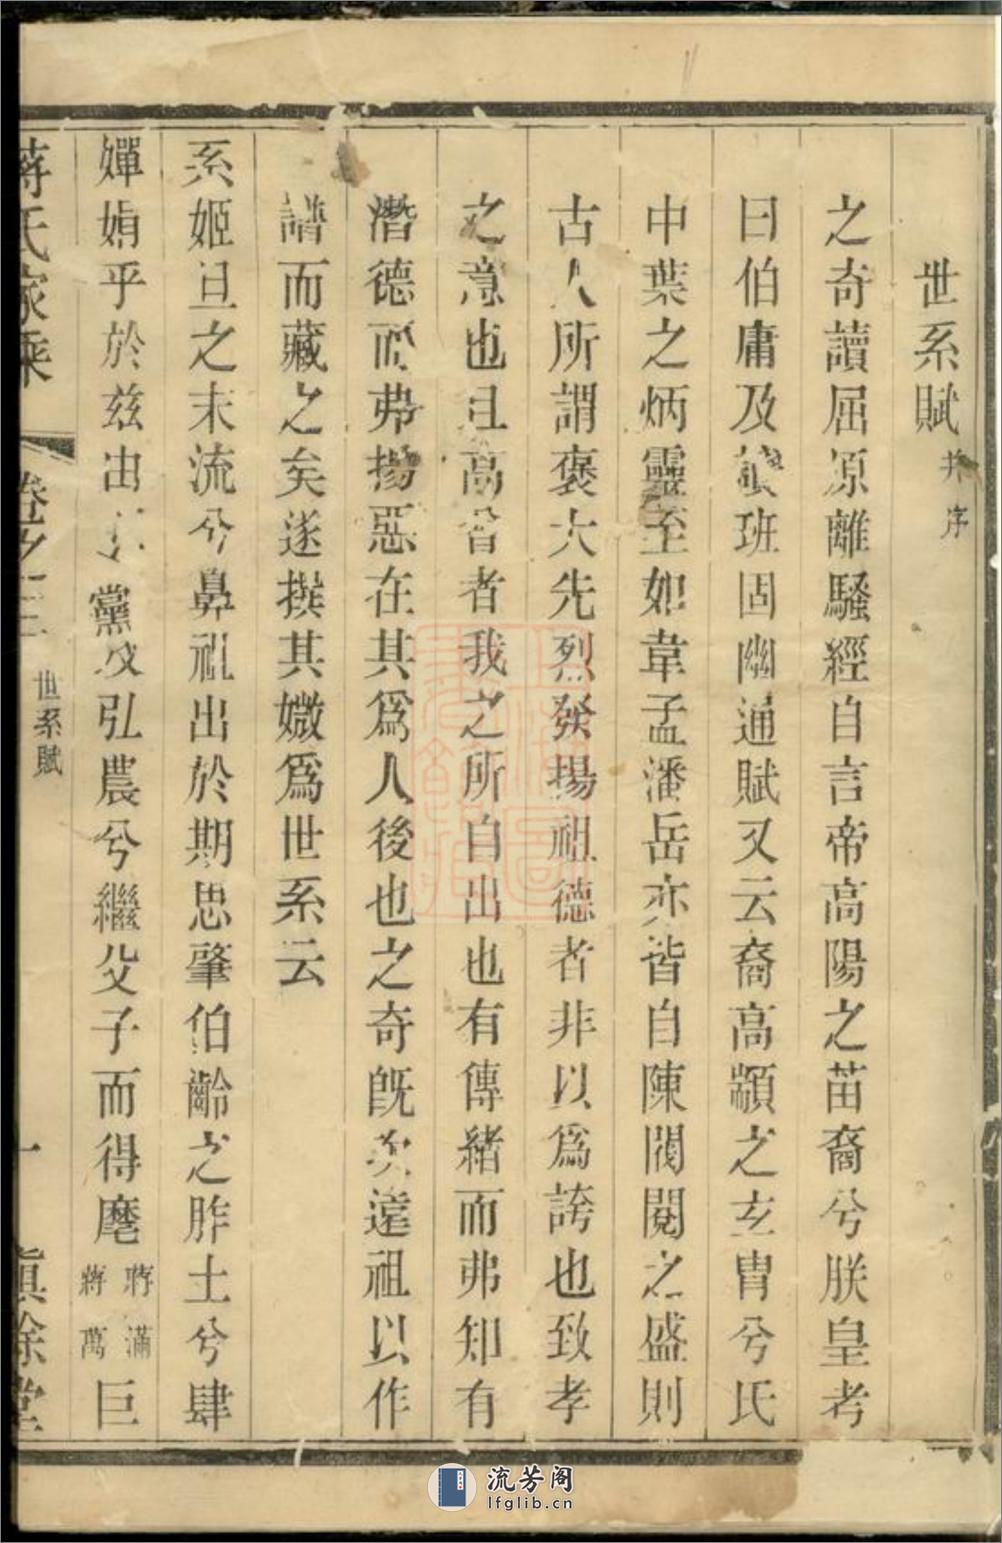 世系賦并序
之奇讀屈原離騷經自言帝高陽之苗裔兮朕皇考
曰伯庸及讀班固幽通賦又云裔高顓之玄胄兮氏
中葉之炳靈至如韋孟潘岳亦皆自陳閥閱之盛則
古人所謂褒大先烈發揚祖德者非以為誇也致孝
之意也且高曾者我之所自出也有傳緒而弗知有
潛德而弗揚惡在其為人後也之奇旣次遠祖以作
譜而藏之矣遂撰其媺為世系云
系姬旦之末流兮鼻祖出於期思肇伯齡之胙土兮肆
嬋媍乎於兹由 黨及弘農兮繼父子而得麾蔣滿蔣萬巨
蔣氏家乘 卷之三 世系賦 一 慎餘堂
流芳阁
lfglib.cn